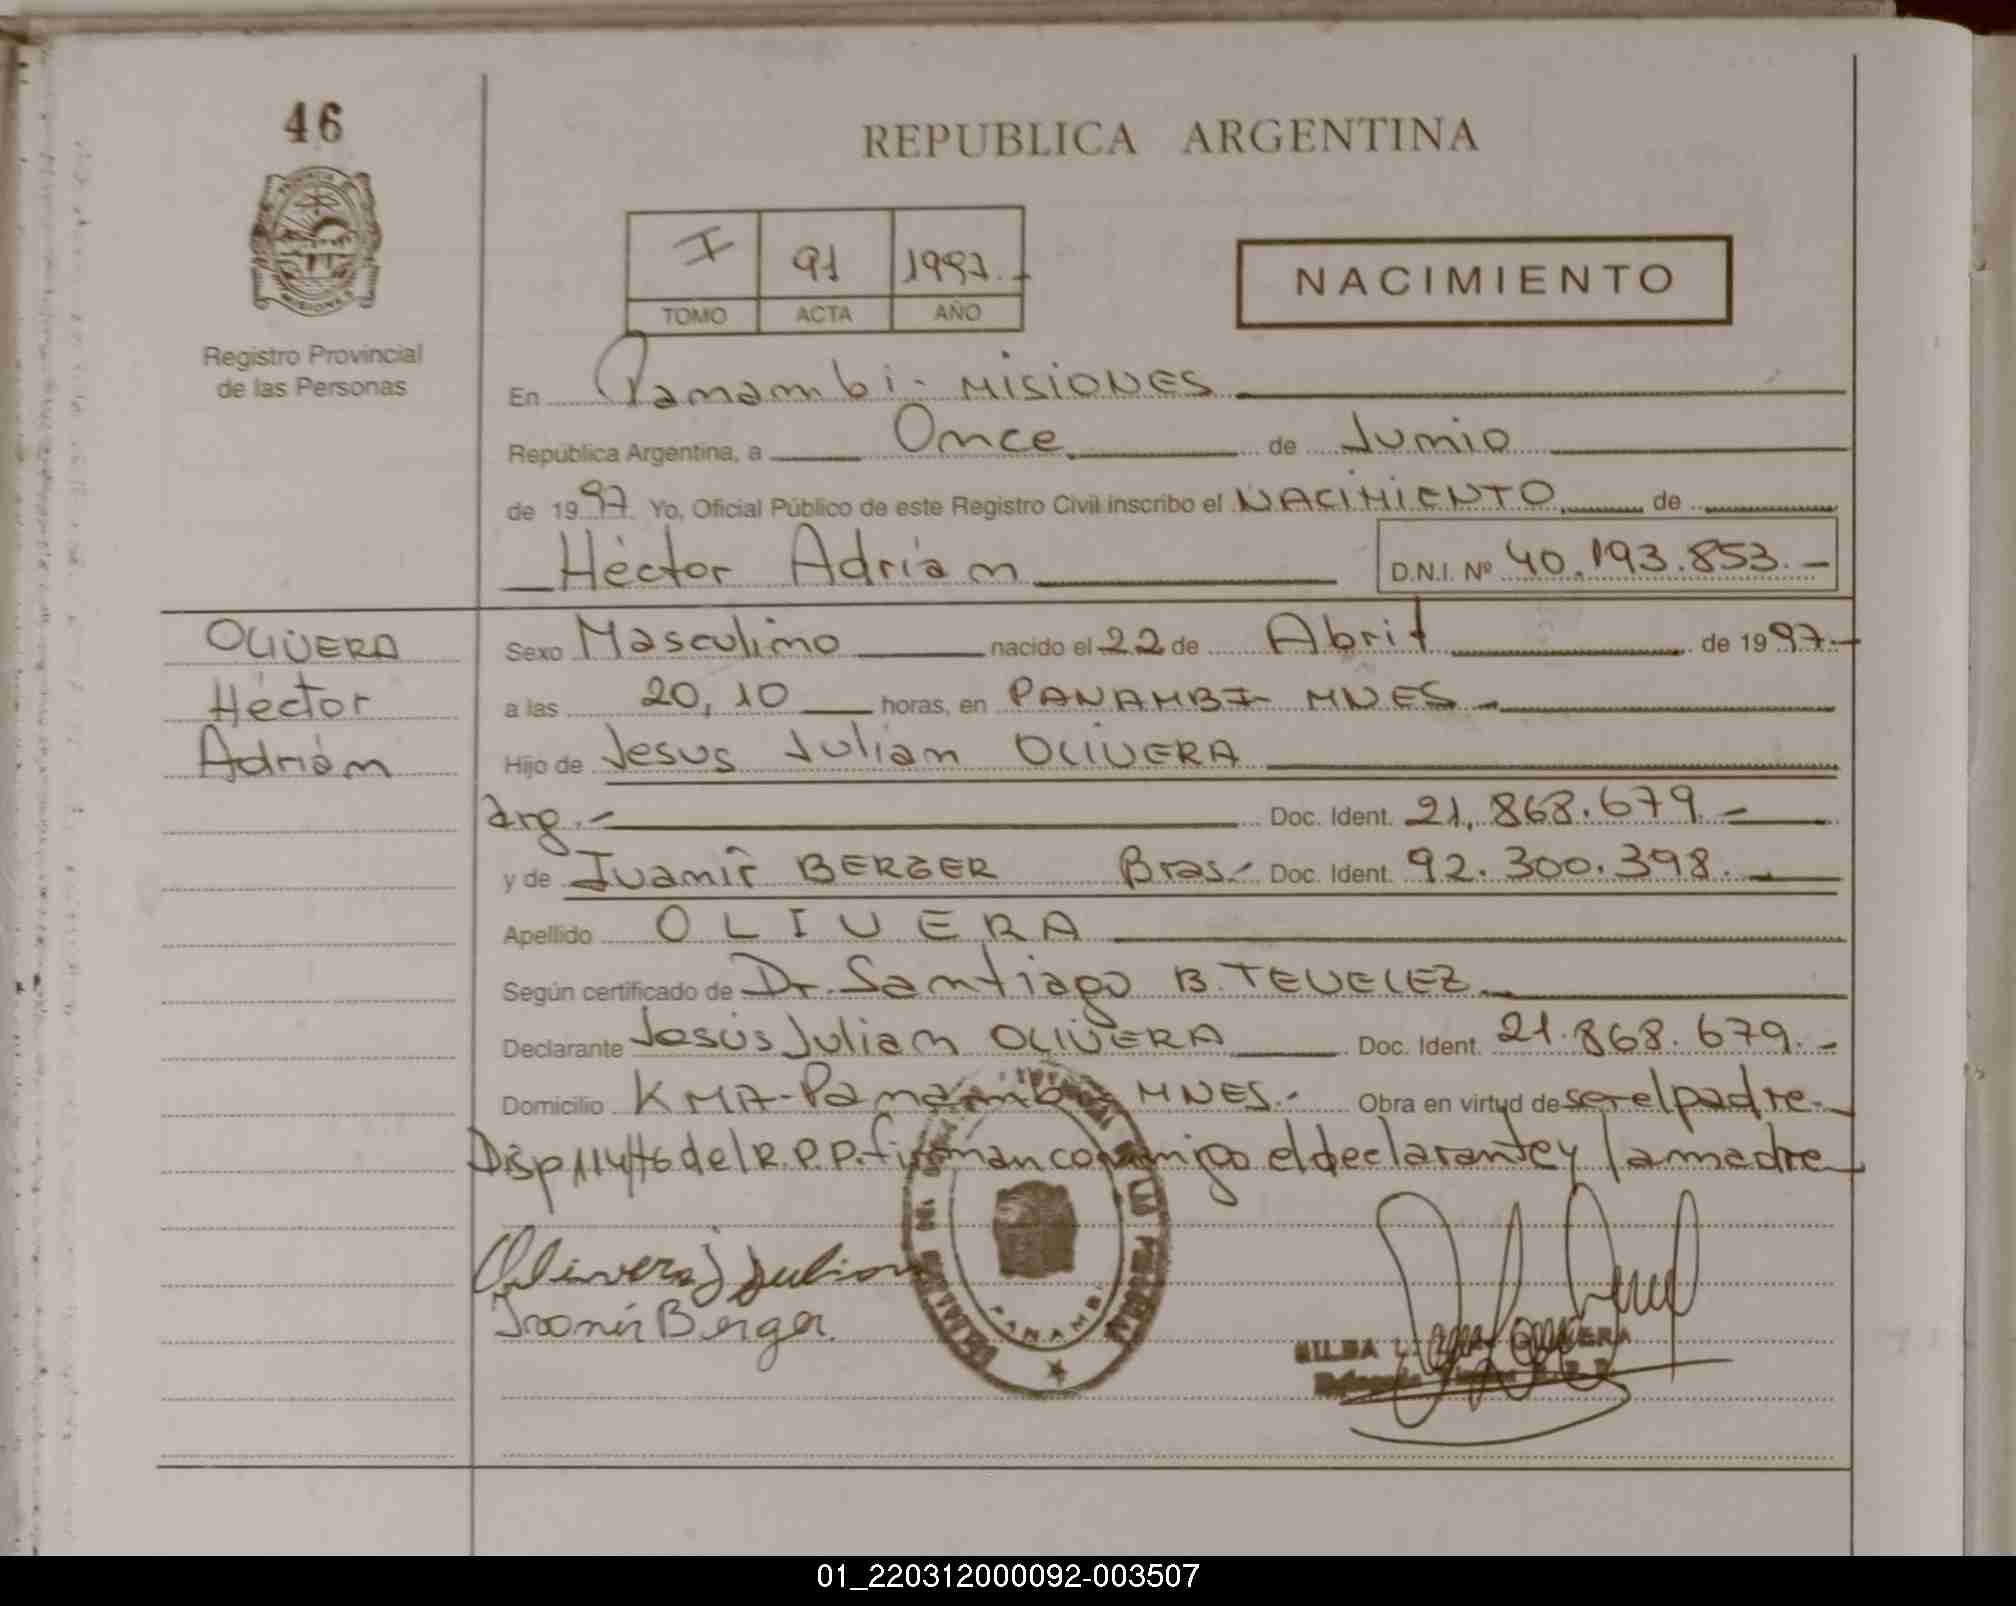 46
REPUBLICA ARGENTINA
PROVINCIA DE
MISIONES
Registro Provincial
de las Personas
I 91 1997.-
TOMO ACTA AÑO
NACIMIENTO
En Panambi - MISIONES
República Argentina, a Once de Junio
de 1997 Yo, Oficial Público de este Registro Civil inscribo el NACIMIENTO, de
Héctor Adrián D.N.I. Nº 40.193.853.-
OLIVERA
Héctor
Adrián
Sexo Masculino nacido el 22 de Abril de 1997.-
a las 20,10 horas, en PANAMBI- MNES.-
Hijo de Jesus Julian OLIVERA
arg.- Doc. Ident. 21.868.679.-
y de BERGER Bras.- Doc. Ident. 92.300.398.-
Apellido OLIVERA
Según certificado de Dr. Santiago B. TEVELEZ.-
Declarante Jesús Julian OLIVERA Doc. Ident. 21.868.679.-
Domicilio KMA-Panambi MNES.- Obra en virtud de ser el padre.-
Disp 114/76 del R.P.P. firman conmigo el declarante y la madre
Olivera J Julian
Berger
PANAMBI
01_220312000092-003507